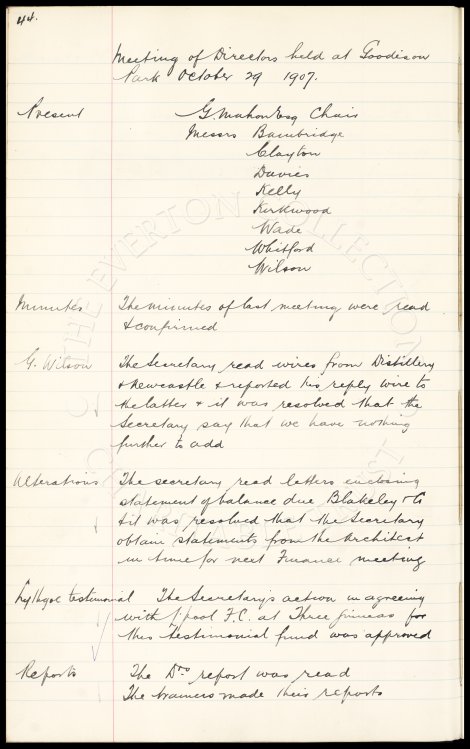 44.
Meeting of Directors held at Goodison
Park October 29 1907.
Present G Mahon Esq Chair
Messrs Bainbridge
Clayton
Davies
Kelly
Kirkwood
Wade
Whitford
Wilson
Minutes The minutes of last meeting were read
& confirmed
G. Wilson The Secretary read wires from Distillery
& Newcastle & reported his reply wire to
the latter & it was resolved that the
Secretary say that we have nothing
further to add
Alterations The secretary read letters enclosing
statement of balance due Blakeley & Co
& it was resolved that the Secretary
obtain statements from the Architect
in time for next Finance meeting
testimonial The Secretary's action in agreeing
with L'pool F.C. at Three guineas for
this testimonial fund was approved
Reports The Drs report was read
The trainers made their reports
THE EVERTON COLLECTION